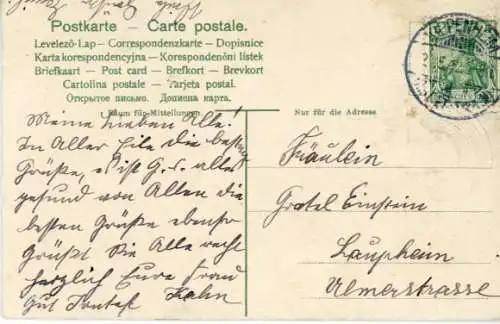 Postkarte — Carte postale.
Levelező-Lap — Correspondenzkarte — Dopisnice
Karta korespondencyjna — Korespondenční lístek
Briefkaart — Post card — Brefkort — Brevkort
Cartolina postale — Tarjeta postal.
Открытое письмо. Дописна карта.
Raum für Mitteilungen
Meine lieben Alle!
In Aller Eile die besten
Grüße, es ist G. s. alles
gesund von Allen die
besten Grüße ebenso
Grüßt Sie Alle recht
herzlich Eure Frau
Kahn
Nur für die Adresse
Fräulein
Gretel Einstein
Laupheim
Ulmerstrasse